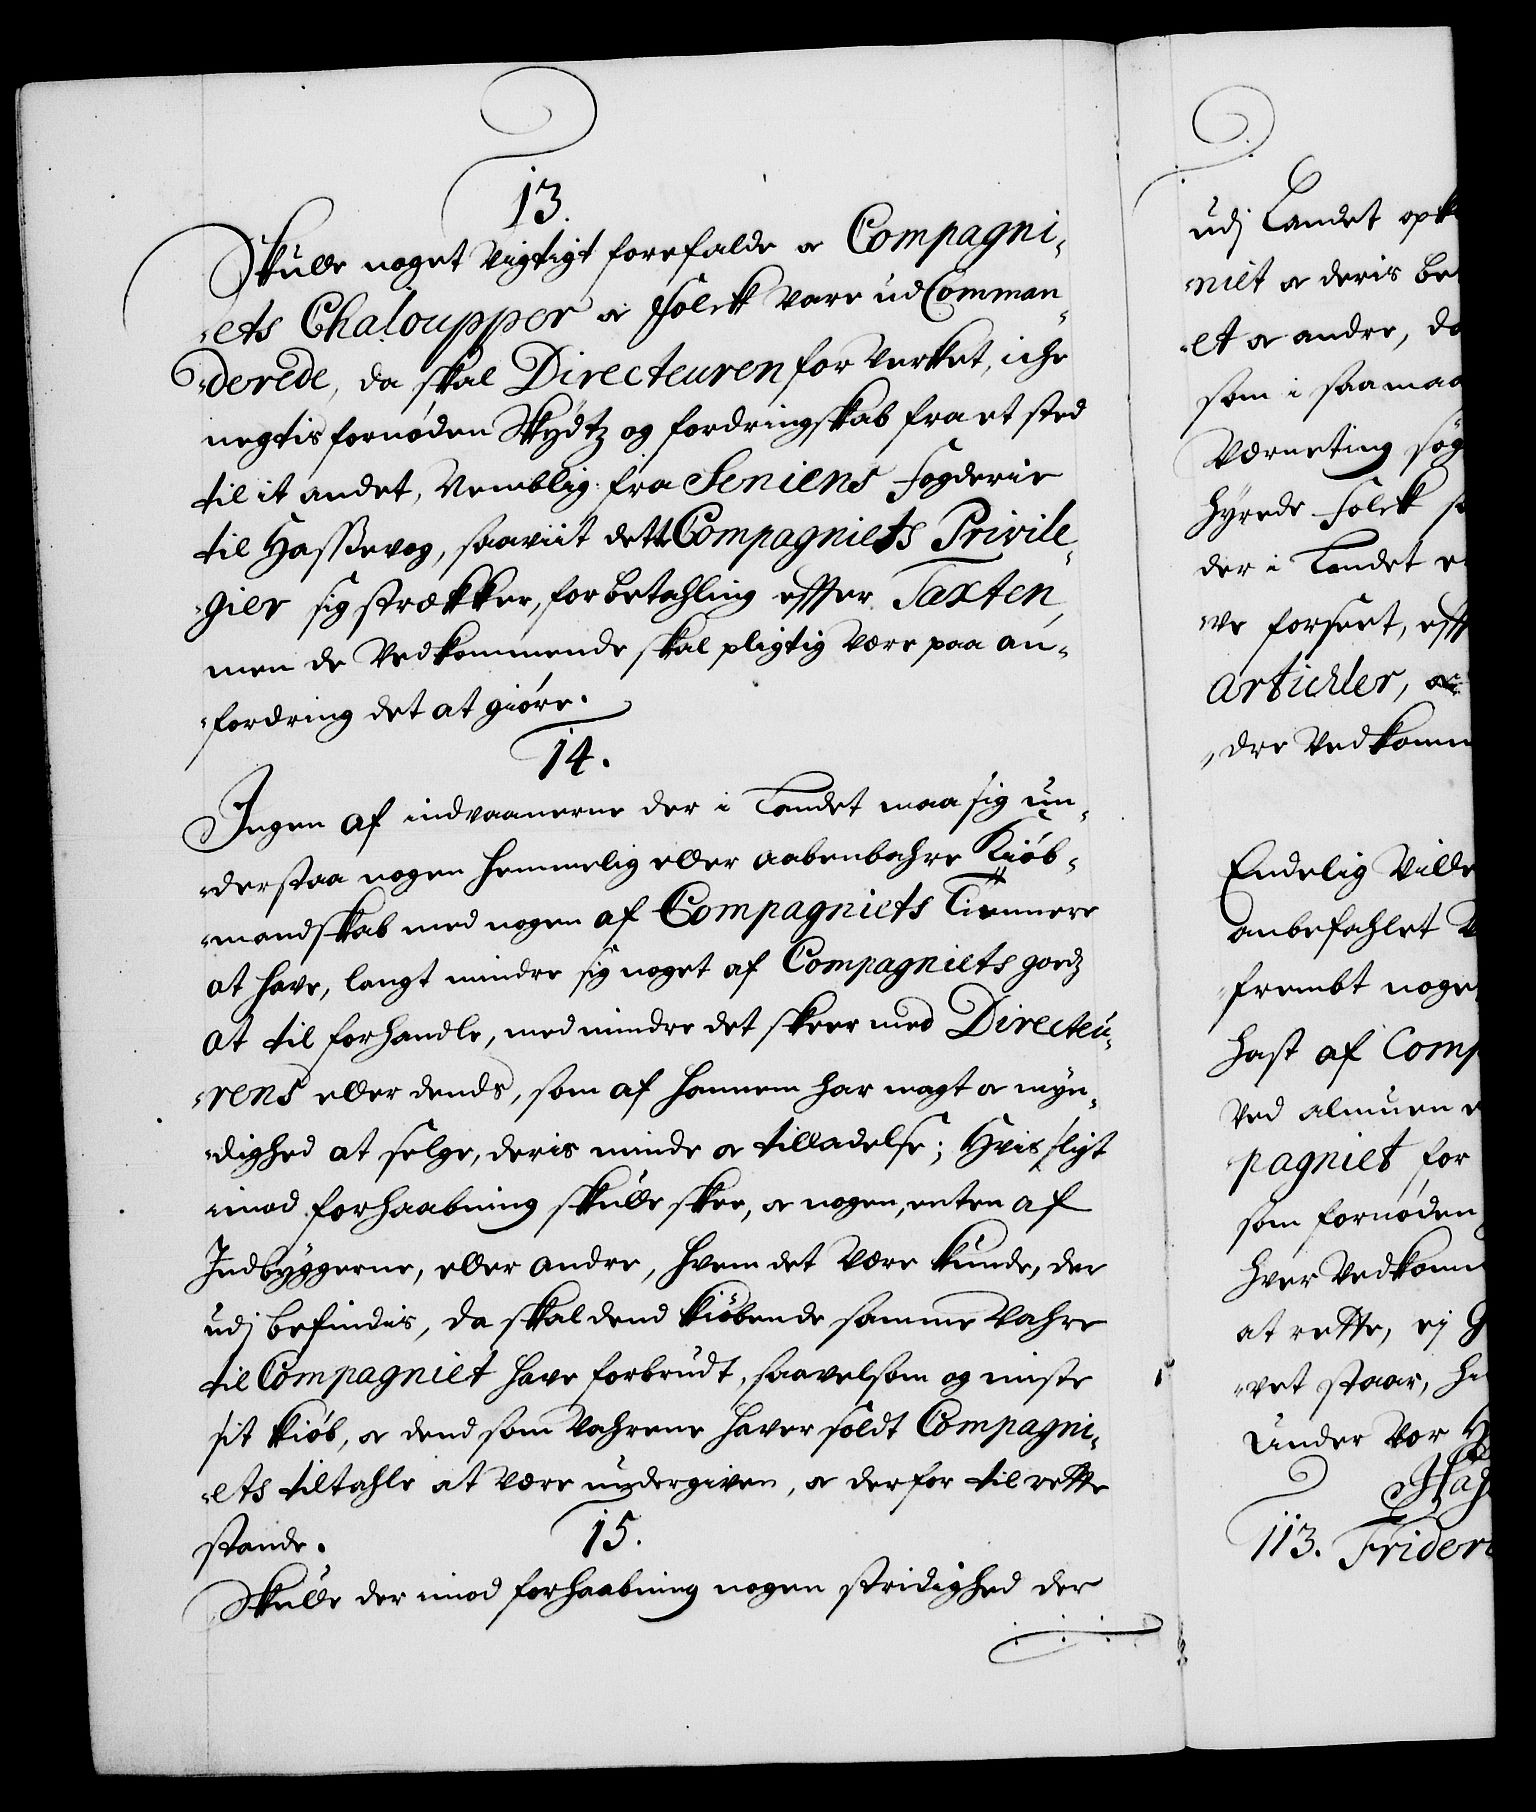 13.
Skulle noget vigtigt forefalde og Compagni-
ets Chaloupper og Folck vare ud Comman-
derede, da skal Directeuren for Verket, iche
negtis fornøden Skydtz og fordringskab fra et sted
til it andet, Nemblig: fra Seniens Fogderie
til Hassevog, saaviit dette Compagniets Privile-
gier sig strækker, for betahling efter Taxten,
men de Vedkommende skal pligtig være paa an-
fordring det at giöre.
14.
Ingen af indvaanerne der i Landet maa sig un-
derstaa nogen hemmelig eller aabenbahre Kiöb-
mandskab med nogen af Compagniets Tiennere
at have, langt mindre sig noget af Compagniets godz
at til forhandle, med mindre det skeer med Directeu-
rens eller dends, som af hannem har magt og myn-
dighed at selge, deris minde og tilladelse; Hvis sligt
imod forhaabning skulle skee, og nogen, enten af
Indbyggerne, eller andre, hvem det være kunde, der
udj befindis, da skal dend kiöbende samme Vahre
til Compagniet have forbrudt, saavelsom og miste
sit kiöb, og dend som Vahrene haver soldt Compagni-
ets tiltahle at være undergiven, og derfor til rette
stande.
15.
Skulle der imod forhaabning nogen stridighed der
udj Landet opk
niet og deris be
et og andre, da
som i saa maa
Værneting søg
hyrede Folck s
der i Landet e
ve forseet, eff
Artickler, og
dre Vedkomm
Endelig Ville
anbefahlet V
frembt noge
hast af Comp
Ved almuen e
pagniet for
som fornøden
hver Vedkomm
at rette, ej G
vet staar, ha
Under Vor H
Hafn
113. Frideri